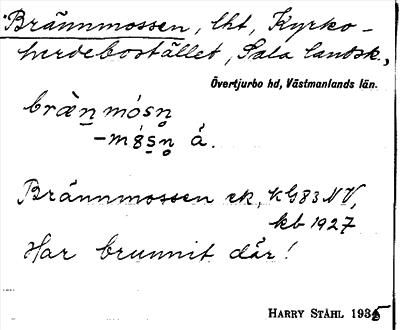 Brännmossen, lht, Kyrko-
herdebostället, Sala landsk.,
Övertjurbo hd, Västmanlands län.
bræ̀n̲ mósn̥
-m8̀s̲n̥ å.
Brännmossen ek, kG83 NV,
kb 1927
Har brunnit där!
HARRY STÅHL 1935